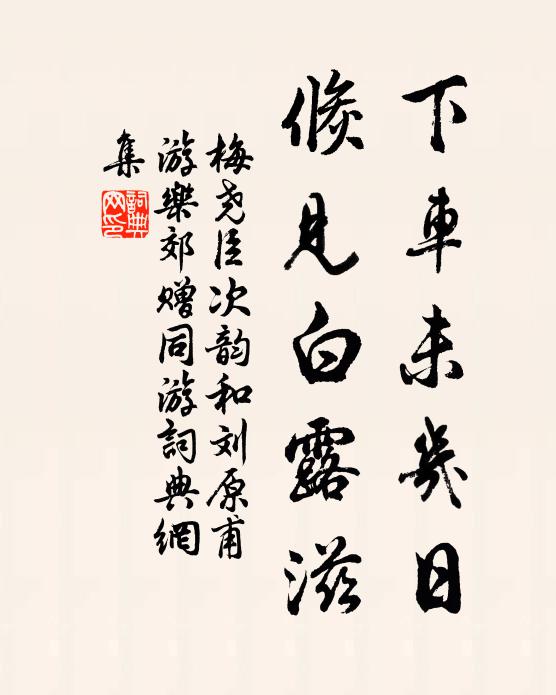 下車未幾日
倏見白露滋
梅尧臣次韵和刘原甫
游樂郊赠同游詞典網
集
詞典网印